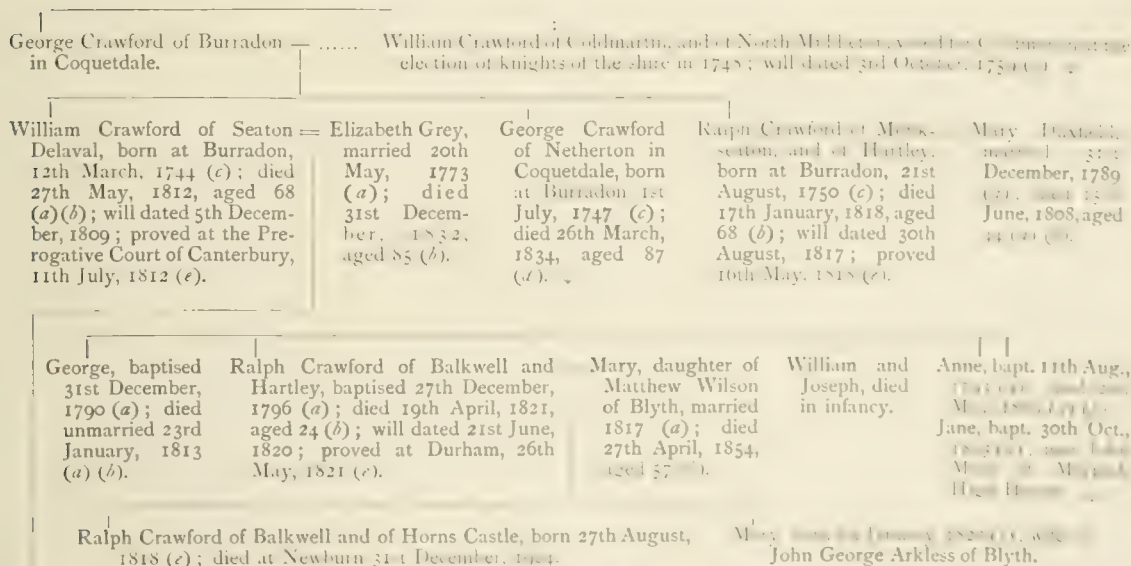 George Crawford of Burradon — ......
in Coquetdale.
William Crawford of Coldmartin, and of North Middleton, voted for
election of knights of the shire in 1748; will dated 3rd October, 1759
William Crawford of Seaton =
Delaval, born at Burradon,
12th March, 1744 (c); died
27th May, 1812, aged 68
(a)(b); will dated 5th Decem-
ber, 1809; proved at the Pre-
rogative Court of Canterbury,
11th July, 1812 (e).
Elizabeth Grey,
married 20th
May, 1773
(a); died
31st Decem-
ber, 1832,
aged 85 (b).
George Crawford
of Netherton in
Coquetdale, born
at Burradon 1st
July, 1747 (c);
died 26th March,
1834, aged 87
(d).
Ralph Crawford of Monk-
seaton, and of Hartley,
born at Burradon, 21st
August, 1750 (c); died
17th January, 1818, aged
68 (b); will dated 30th
August, 1817; proved
16th May, 1818 (e).
Mary
married 31st
December, 1789
June, 1808, aged
44
George, baptised
31st December,
1790 (a); died
unmarried 23rd
January, 1813
(a) (b).
Ralph Crawford of Balkwell and
Hartley, baptised 27th December,
1796 (a); died 19th April, 1821,
aged 24 (b); will dated 21st June,
1820; proved at Durham, 26th
May, 1821 (e).
Mary, daughter of
Matthew Wilson
of Blyth, married
1817 (a); died
27th April, 1854,
aged 57
William and
Joseph, died
in infancy.
Anne, bapt. 11th Aug.,
Jane, bapt. 30th Oct.,
Ralph Crawford of Balkwell and of Horns Castle, born 27th August,
1818 (e); died at Newburn 31st December,
John George Arkless of Blyth.